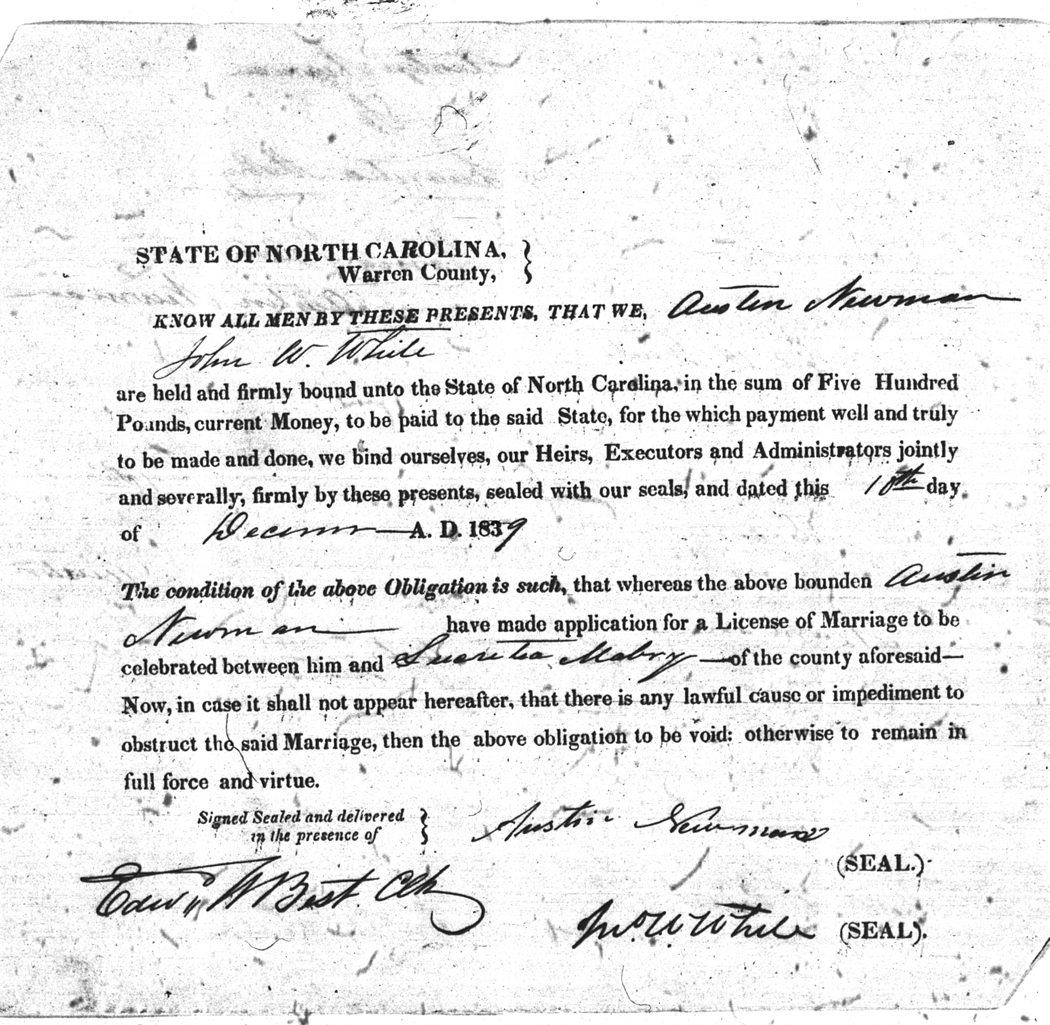 STATE OF NORTH CAROLINA,
Warren County,
KNOW ALL MEN BY THESE PRESENTS, THAT WE, Austin Newman
John W. White
are held and firmly bound unto the State of North Carolina, in the sum of Five Hundred
Pounds, current Money, to be paid to the said State, for the which payment well and truly
to be made and done, we bind ourselves, our Heirs, Executors and Administrators jointly
and severally, firmly by these presents, sealed with our seals, and dated this 18th day
of A. D. 1839
The condition of the above Obligation is such, that whereas the above bounden Austin
Newman have made application for a License of Marriage to be
celebrated between him and Lucretia Mabry of the county aforesaid—
Now, in case it shall not appear hereafter, that there is any lawful cause or impediment to
obstruct the said Marriage, then the above obligation to be void: otherwise to remain in
full force and virtue.
Signed Sealed and delivered
in the presence of
Austin Newman
(SEAL.)
Edw W Best Clk
Jno W White (SEAL).